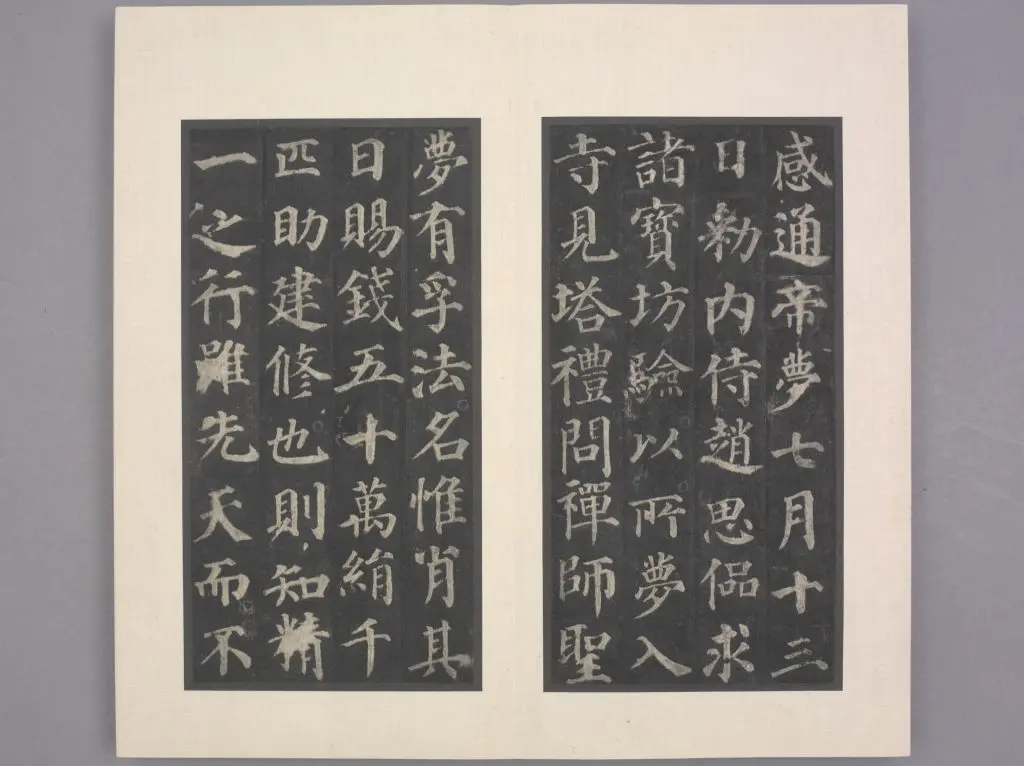 感通帝夢七月十三
日勑内侍趙思侃求
諸寶坊驗以所夢入
寺見塔禮問禪師聖
夢有孚法名惟肖其
日賜錢五十萬絹千
匹助建修也則知精
一之行雖先天而不